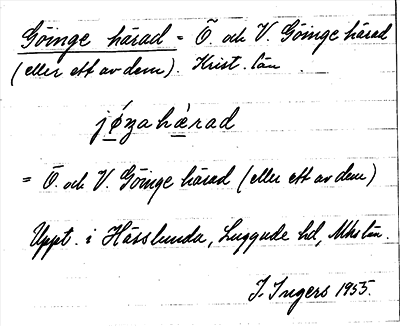 Göinge härad = Ö. och V. Göinge härad
(eller ett av dem). Krist. län
jǿŋa hærad
= Ö. och V. Göinge härad (eller ett av dem)
Uppt. i Hässlunda, Luggude hd, Mhs län.
I. Ingers 1955.